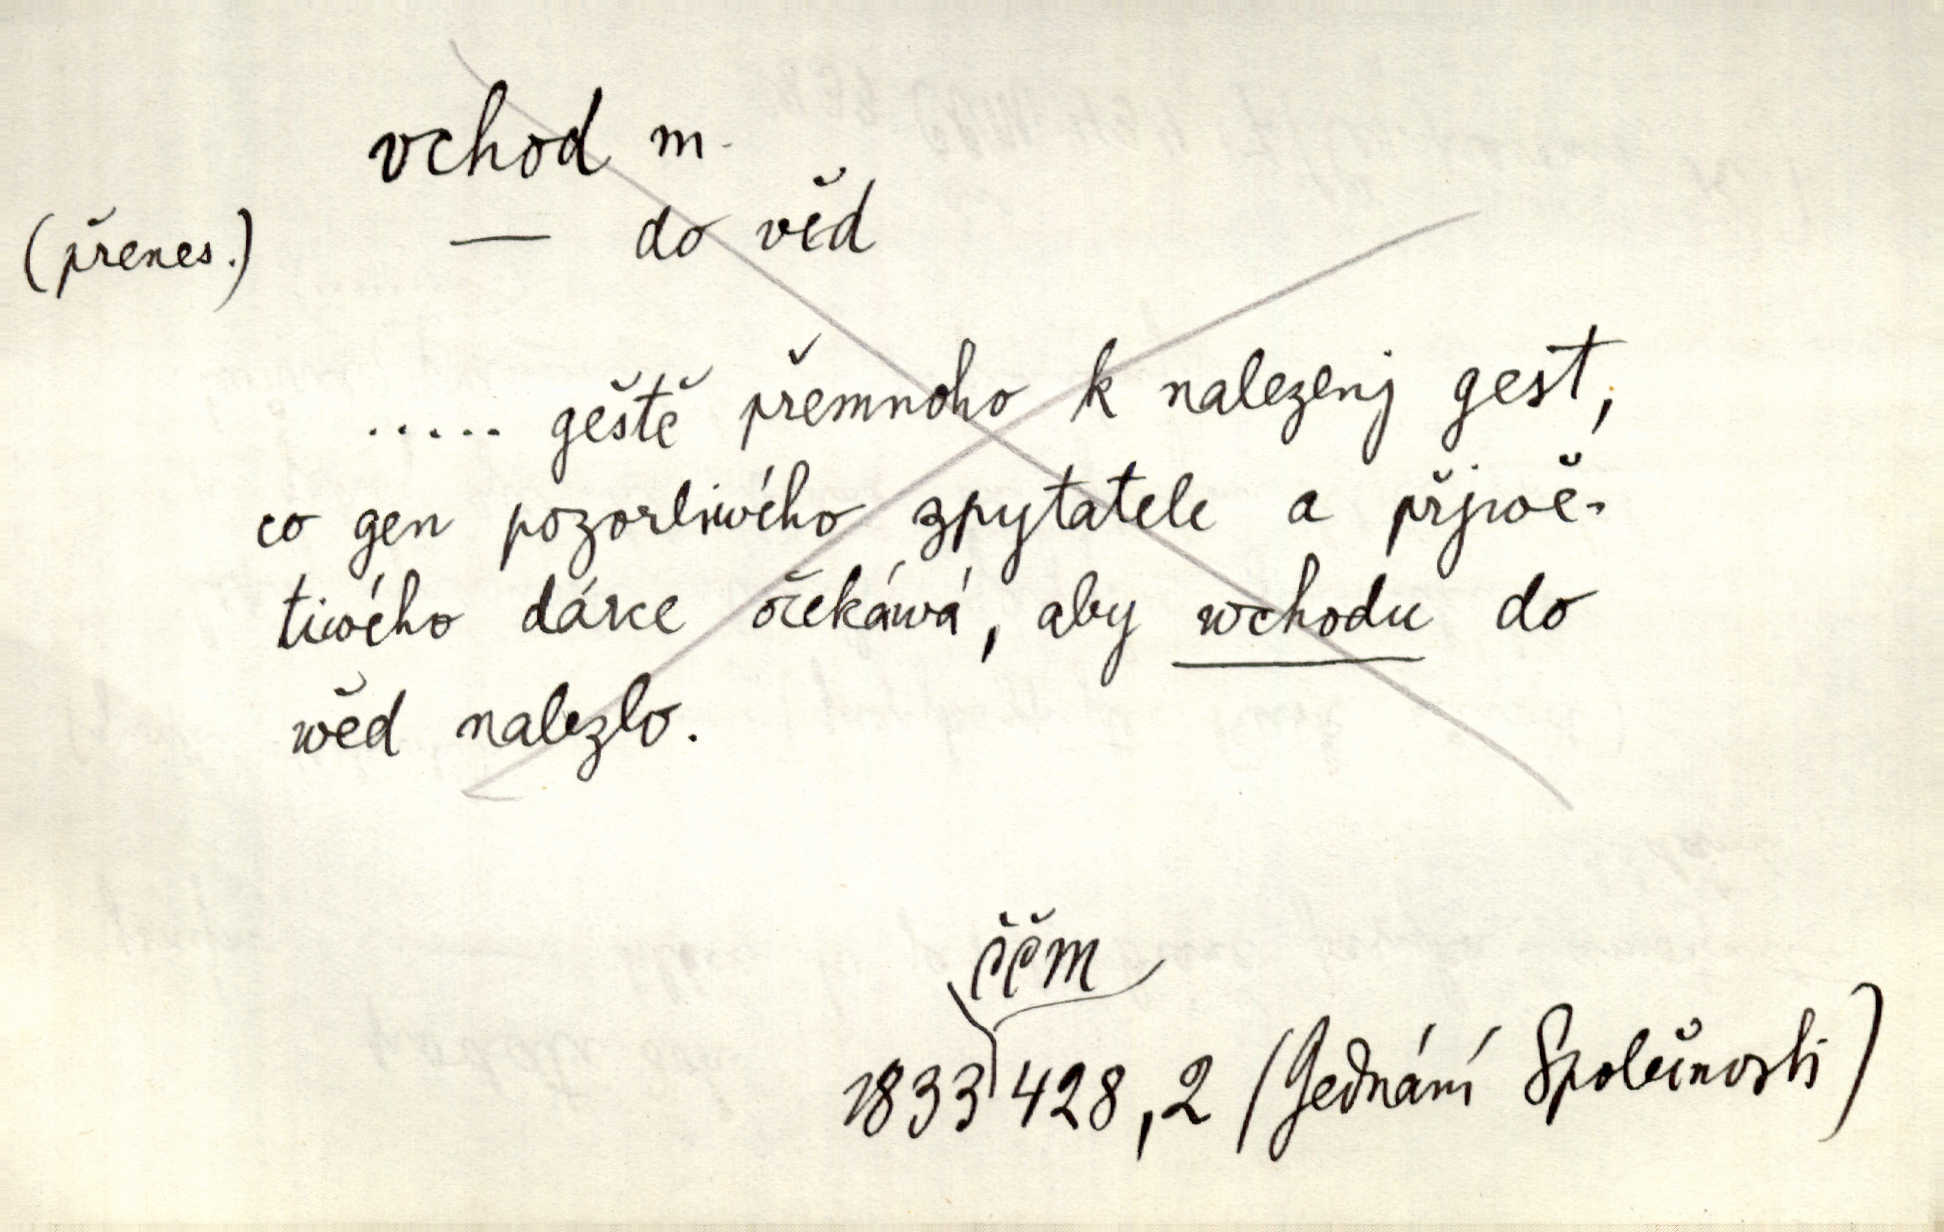 vchod m.
(přenes.) — do věd
..... geště přemnoho k nalezenj gest,
co gen pozorliwého zpytatele a přjwě-
tiwého dárce očekáwá, aby wchodu do
wěd nalezlo.
ČČM
1833 428,2 (Gednání Společnosti)